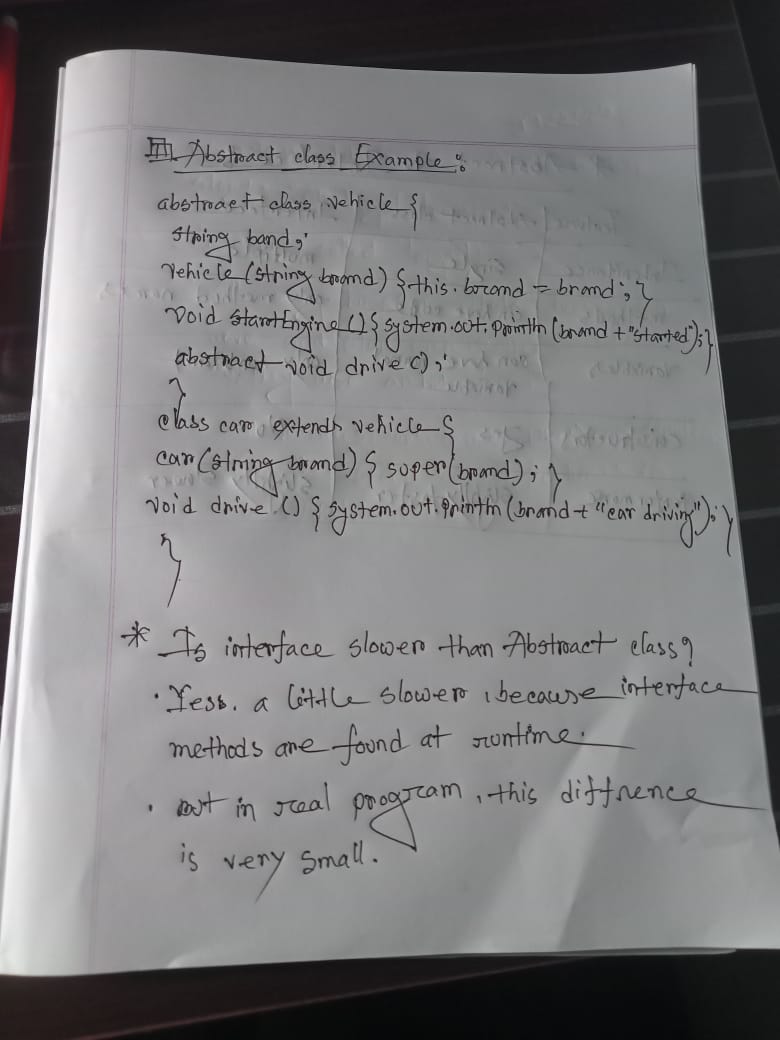 Abstract class Example:
abstract class vehicle {
string band;
vehicle (string brand) { this.brand = brand; }
void startEngine () { system.out.println (brand + "started"); }
abstract void drive ();
}
class car extends vehicle {
car (string brand) { super (brand); }
void drive () { system.out.println (brand + "car driving"); }
}
* Is interface slower than Abstract class?
· Yess. a little slower, because interface
methods are found at runtime.
· but in real program, this diffrence
is very small.